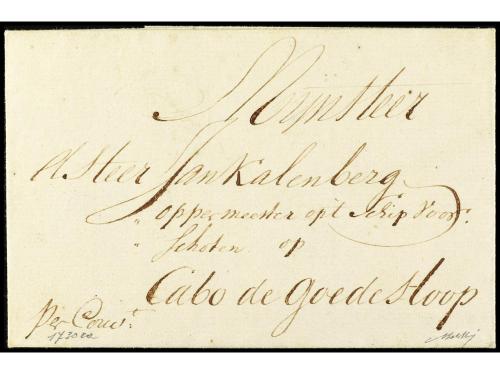 MijnHeer
d'Heer Jan Kalenberg
" oppermeester op't Schip Voor
" schoten op
Cabo de Goede Hoop
Per Couv.t